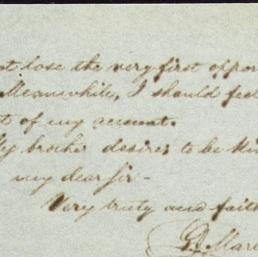 not lose the very first oppor
Meanwhile, I should feel
t of my account.
My brother desires to be kin
my dear Sir -
Very truly and faith
G. Mar